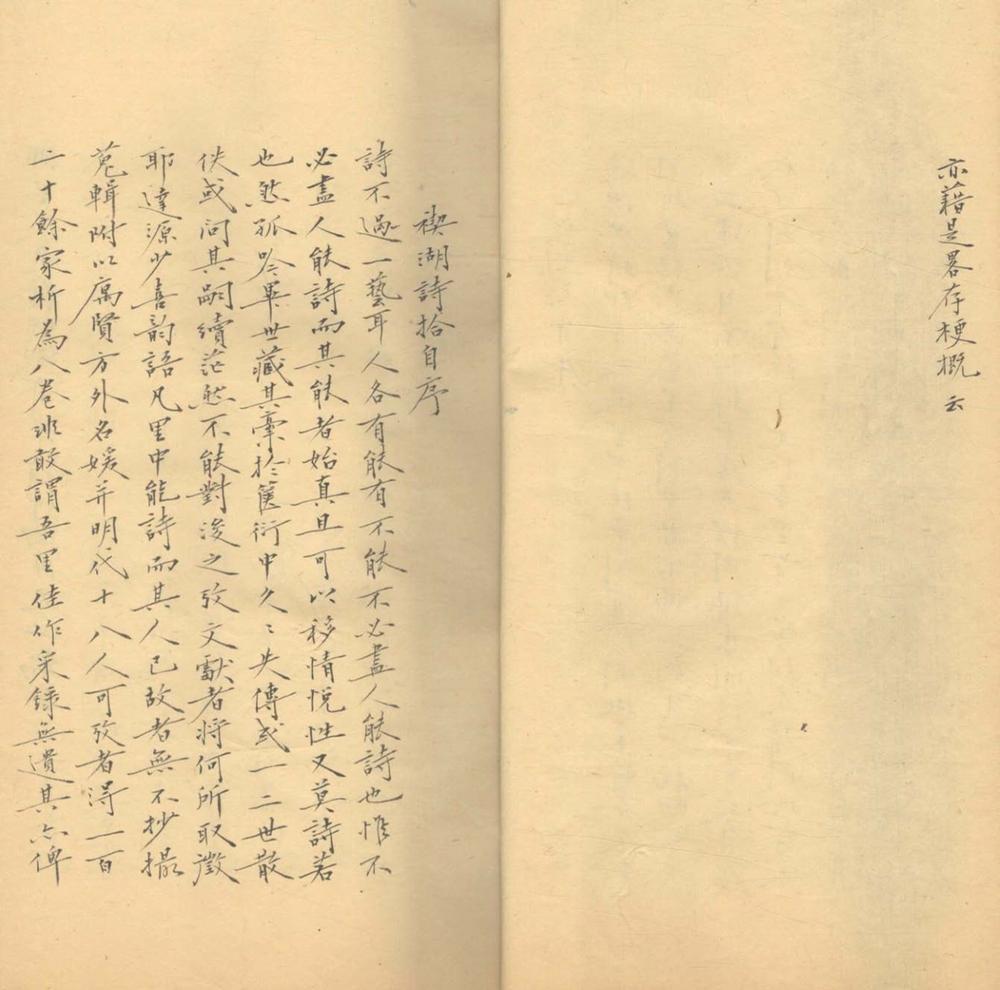 亦藉是畧存梗概云
禊湖詩拾自序
詩不過一藝耳人各有能有不能不必盡人能詩也惟不
必盡人能詩而其能者始真且可以移情悅性又莫詩若
也然孤吟畢世藏其稾於篋衍中久〻失傳或一二世散
佚或問其嗣續茫然不能對後之攷文獻者將何所取徵
耶達源少喜韵語凡里中能詩而其人已故者無不抄撮
蒐輯附以寓賢方外名媛并明代十八人可攷者得一百
二十餘家析為八卷非敢謂吾里佳作采錄無遺其亦俾